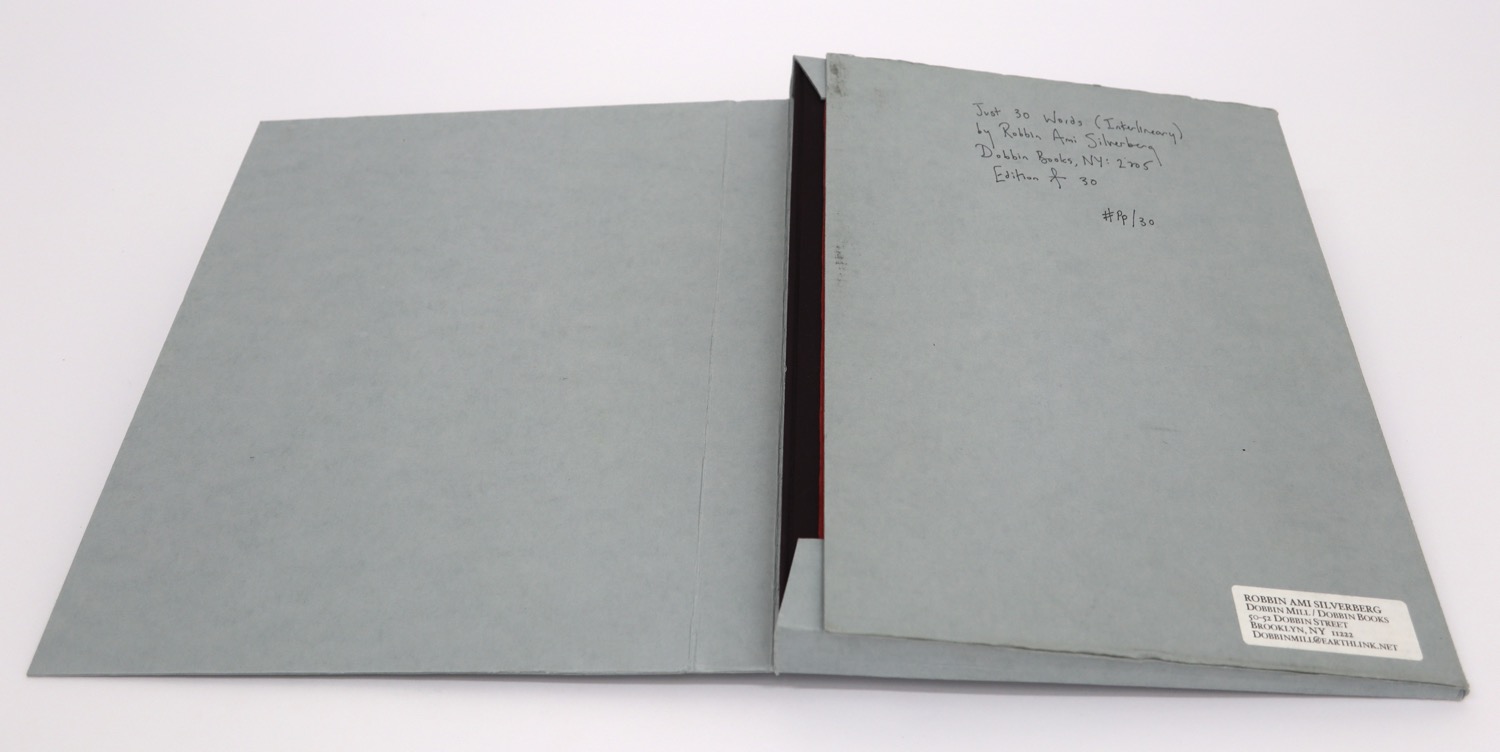 Just 30 Words (Interlineary)
by Robbin Ami Silverberg
Dobbin Books, NY: 2005
Edition of 30
#PP/30
ROBBIN AMI SILVERBERG
DOBBIN MILL / DOBBIN BOOKS
50-52 DOBBIN STREET
BROOKLYN, NY 11222
DOBBINMILL@EARTHLINK.NET